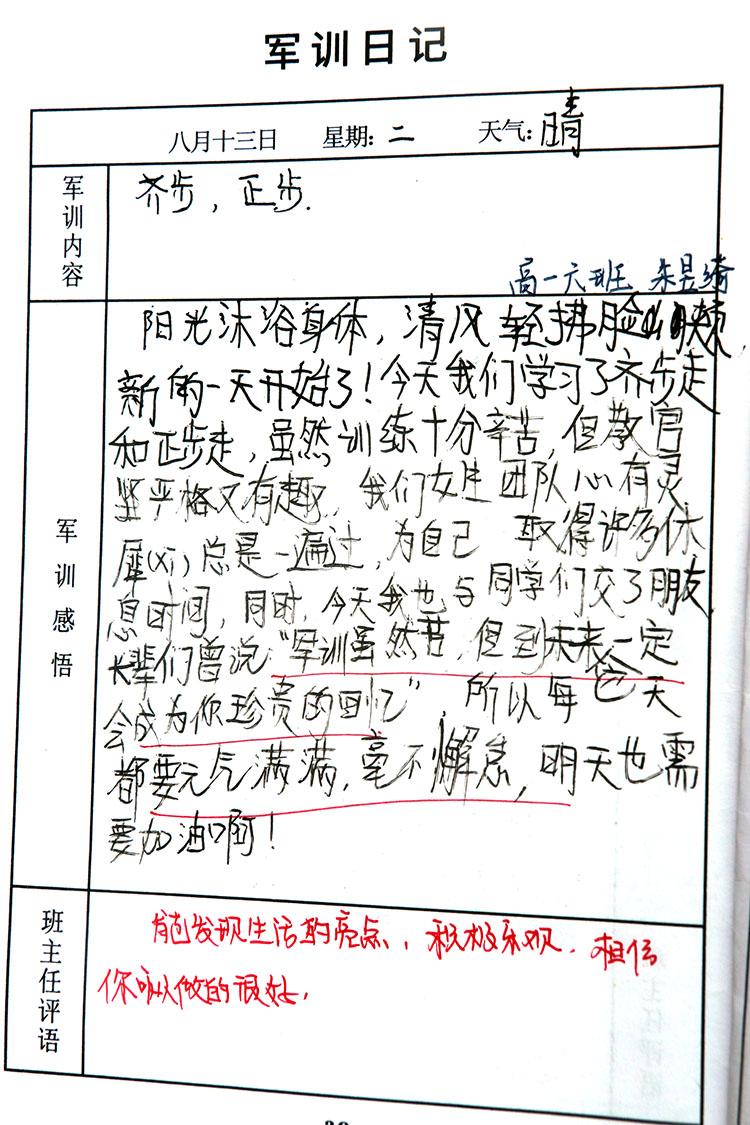 军训日记
八月十三日 星期：二 天气：晴
军训内容
齐步，正步.
高一六班 朱昱绮
军训感悟
阳光沐浴身体，清风轻拂脸颊，
新的一天开始了！今天我们学习了齐步走
和正步走，虽然训练十分辛苦，但教官
坚严格又有趣，我们女生团队心有灵
犀(xi)总是一遍过，为自己 取得许多休
息时间，同时，今天我也与同学们交了朋友
长辈们曾说“军训虽然苦，但到未来一定
会成为你珍贵的回忆”，所以每一天
都要元气满满，毫不懈怠，明天也需
要加油啊！
班主任评语
能发现生活的亮点，积极乐观，相信
你可以做的很好，